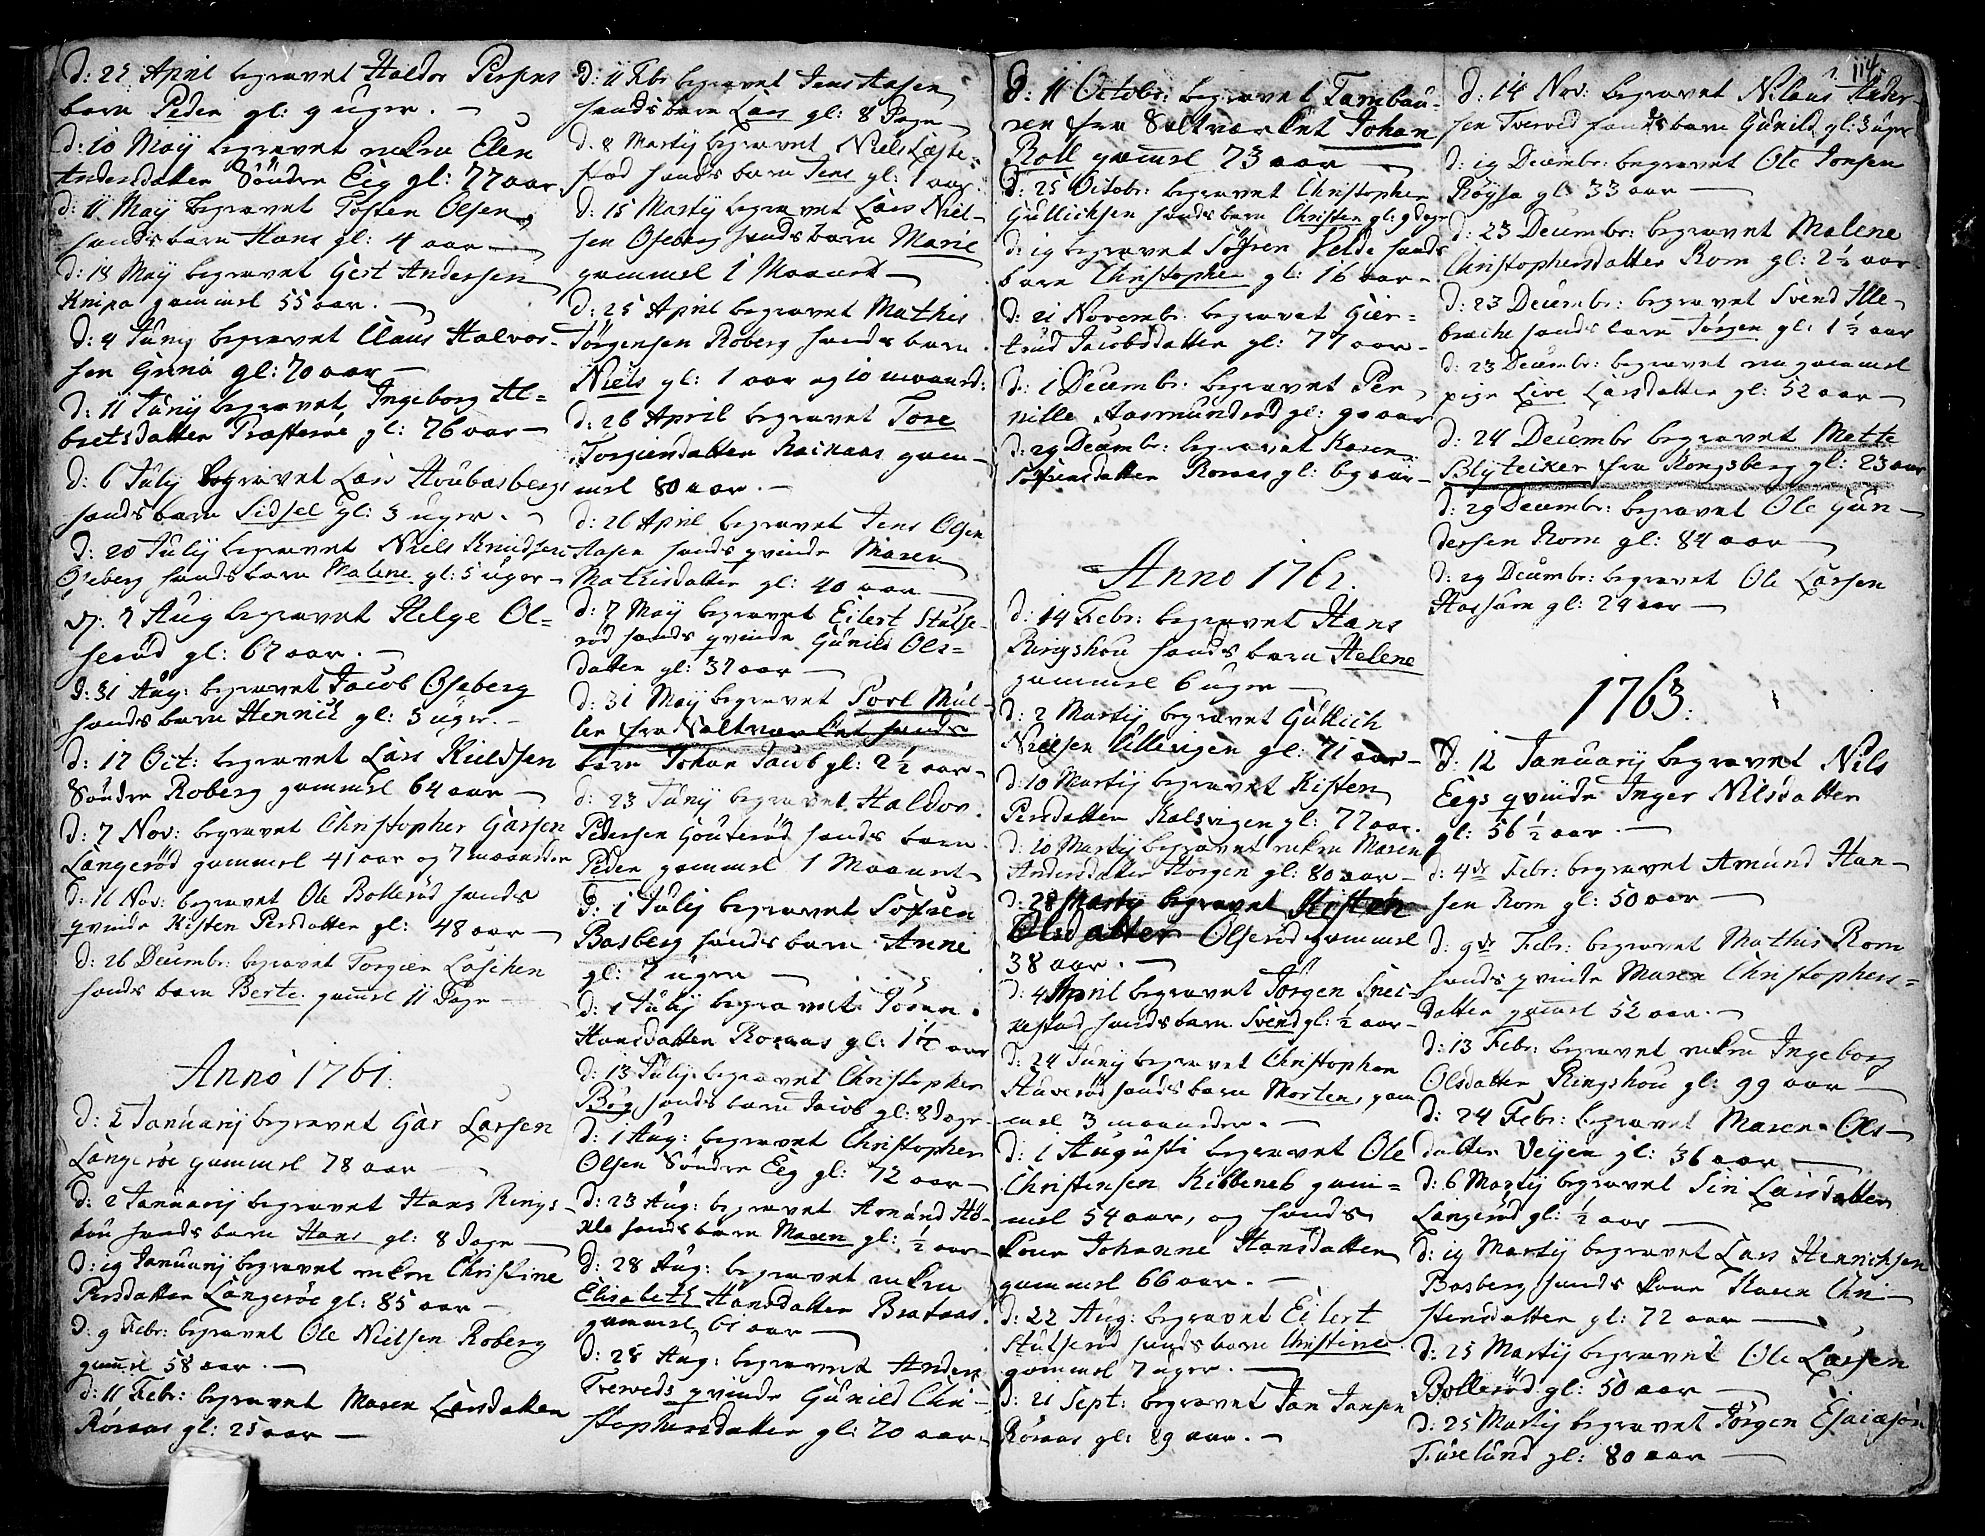 d: 27 April begravet Haldor Persens
barn Peder gl: 9 uger. —
d: 10 Maij begravet enken Elen
Andersdatter Söndre Eeg gl: 77 aar
d: 11 Maij begravet Tosten Olsen
hands barn Hans gl: 4 aar —
d: 18 Maij begravet Gert Andersen
Knipa gammel 55 aar. —
d: 4 Junij begravet Claus Halvor-
sen gl: 70 aar —
d: 11 Junij begravet Ingeborg Al=
bretsdatter gl: 76 aar —
d: 6 Julij begravet Lars
hands barn Sidsel gl: 3 uger. —
d: 20 Julij begravet Niels Knudsen
Oseberg hands barn Malene gl: 5 uger —
d: 7 Aug begravet Helge Ol=
serød gl: 67 aar. —
d: 31 Aug: begravet Jacob Oseberg
hands barn Henrich gl: 3 uger. —
d: 17 Oct: begravet Lars Kieldsen
Söndre Roberg gammel 64 aar —
d: 7 Nov: begravet Christopher Garsen
Langeröd gammel 41 aar og 7 maaneder
d: 16 Nov: begravet Ole Bollerød hands
qvinde Kisten Persdatter gl: 48 aar —
d: 26 Decembr: begravet Torgier
hands barn Berte gammel 11 Dage —
Anno 1761.
d: 2 Januarij begravet Gar Larsen
Langeröe gammel 78 aar —
d: 2 Januarij begravet Hans Rings-
hou hands barn Hans gl: 8 Dage —
d: 19 Januarij begravet enken Christine
Persdatter Langeröe gl: 85 aar —
d: 9 Febr: begravet Ole Nielsen Roberg
gammel 58 aar. —
d: 11 Febr: begravet Maren Larsdatter
Röraas gl: 25 aar —
d: 11 Febr begravet Jens Aasen
hands barn Lars gl: 8 Dage —
d: 8 Martij begravet Niels
hands barn Jens gl: 1 aar.
d: 15 Martij begravet Lars Niel-
sen Oseberg hands barn Marie
gammel 1 Maanet —
d: 25 April begravet Mathis
Jörgensen Roberg hands barn
Niels gl: 1 aar og 10 maaned:
d: 26 April begravet Tore
Torgiersdatter gam-
mel 80 aar. —
d: 26 April begravet Jens Olsen
Aasen hands qvinde Maren
Mathisdatter gl: 40 aar —
d: 7 Maij begravet Eilert Stulse-
röd hands qvinde Gunild Ols=
datter gl: 37 aar —
d: 31 Maij begravet Povl Mül-
ler fra Saltværket hands
barn Johan Jacob gl: 2½ aar —
d: 23 Junij begravet Haldor
Pedersen hands barn
Peder gammel 1 Maanet —
d: 1 Julij begravet Söfren
Basberg hands barn Anne
gl: 7 uger —
d: 1 Julij begravet
Hansdatter Roraas gl: aar
d: 13 Julij begravet Christopher
Bög hands barn Jacob gl: 8 Dage —
d: 1 Aug: begravet Christopher
Olsen Söndre Eeg gl: 72 aar —
d: 23 Aug: begravet Amund
hands barn Maren gl: ½ aar —
d: 28 Aug: begravet enken
Elisabeth Hansdatter Brataas.
gammel 61 aar —
d: 28 Aug: begravet Anders
Tveveds qvinde Gunild Chri-
stophersdatter gl: 70 aar. —
d: 11 Octobr: begravet Tambau-
ren fra Saltværket Johan
Roll gammel 73 aar —
d: 25 Octobr: begravet Christopher
Gullichsen hands barn Christen gl: 9 dage
d: 19 begravet Söfren Velde hands
barn Christopher gl: 16 aar —
d: 21 Novembr: begravet Gier=
trud Jacobsdatter gl: 77 aar —
d: 1 Decembr: begravet Per-
nille Aasmundröd gl: 90 aar
d: 29 Decembr: begravet Karen
Söfrensdatter Roraas gl: 69 aar —
Anno 1762.
d: 14 Febr: begravet Hans
Ringshou hands barn Helene
gammel 6 uger —
d: 2 Martij begravet Gullich
Nielsen Ullevigen gl: 71 aar —
d: 10 Martij begravet Kisten
Persdatter Kalsvigen gl: 77 aar.
d: 10 Martij begravet enken Maren
Andersdatter Horgen gl: 80 aar —
d: 28 Martij begravet Kisten
Olsdatter Olserød gammel
38 aar. —
d: 4 April begravet Jörgen Snei-
kestad hands barn Svend gl: ½ aar —
d: 24 Junij begravet Christopher
Haveröd hands barn Morten, gam-
mel 3 maaneder. —
d: 1 Augusti begravet Ole
Christensen gam=
mel 54 aar, og hands
kone Johanne Hansdatter
gammel 66 aar. —
d: 22 Aug: begravet Eilert
Stulseröd hands barn Christine
gammel 7 uger. —
d: 21 Sept: begravet Jan Jansen
Röraas gl: 89 aar. —
114
d: 14 Nov: begravet Nilaus Ander-
sen Tveved hands barn Gunild gl: 3 uger
d: 19 Decembr: begravet Ole Jonsen
Röysa gl: 33 aar —
d: 23 Decembr: begravet Malene
Christophersdatter Rom gl: 2½ aar
d: 23 Decembr: begravet Svend Ille-
brache hands barn Jörgen gl: 1½ aar
d: 23 Decembr: begravet en gammel
pige Live Larsdatter gl: 52 aar —
d: 24 Decembr begravet Mette
Blyteiker fra Kongsberg gl: 23 aar
d: 29 Decembr: begravet Ole Gun-
dersen Rom gl: 84 aar —
d: 29 Decembr: begravet Ole Larsen
gl: 24 aar —
1763.
d: 12 Januarij begravet Nils
Eegs qvinde Inger Nilsdatter
gl: 56½ aar. —
d: 4de Febr: begravet Amund Han-
sen Rom gl: 50 aar —
d: 9de Febr: begravet Mathis Rom
hands qvinde Maren Christophers=
datter gammel 52 aar. —
d: 13 Febr: begravet enken Ingeborg
Olsdatter Ringshou gl: 99 aar —
d: 24 Febr: begravet Maren Ols-
datter Veijen gl: 36 aar —
d: 6 Martij begravet Siri Larsdatter
Langeröd gl: ½ aar —
d: 19 Martij begravet Lars Henrichsen
Basberg hands kone Karen Chri-
stensdatter gl: 72 aar —
d: 25 Martij begravet Ole Larsen
Bolleröd gl: 50 aar —
d: 25 Martij begravet Jörgen Esaiasön
gl: 80 aar —